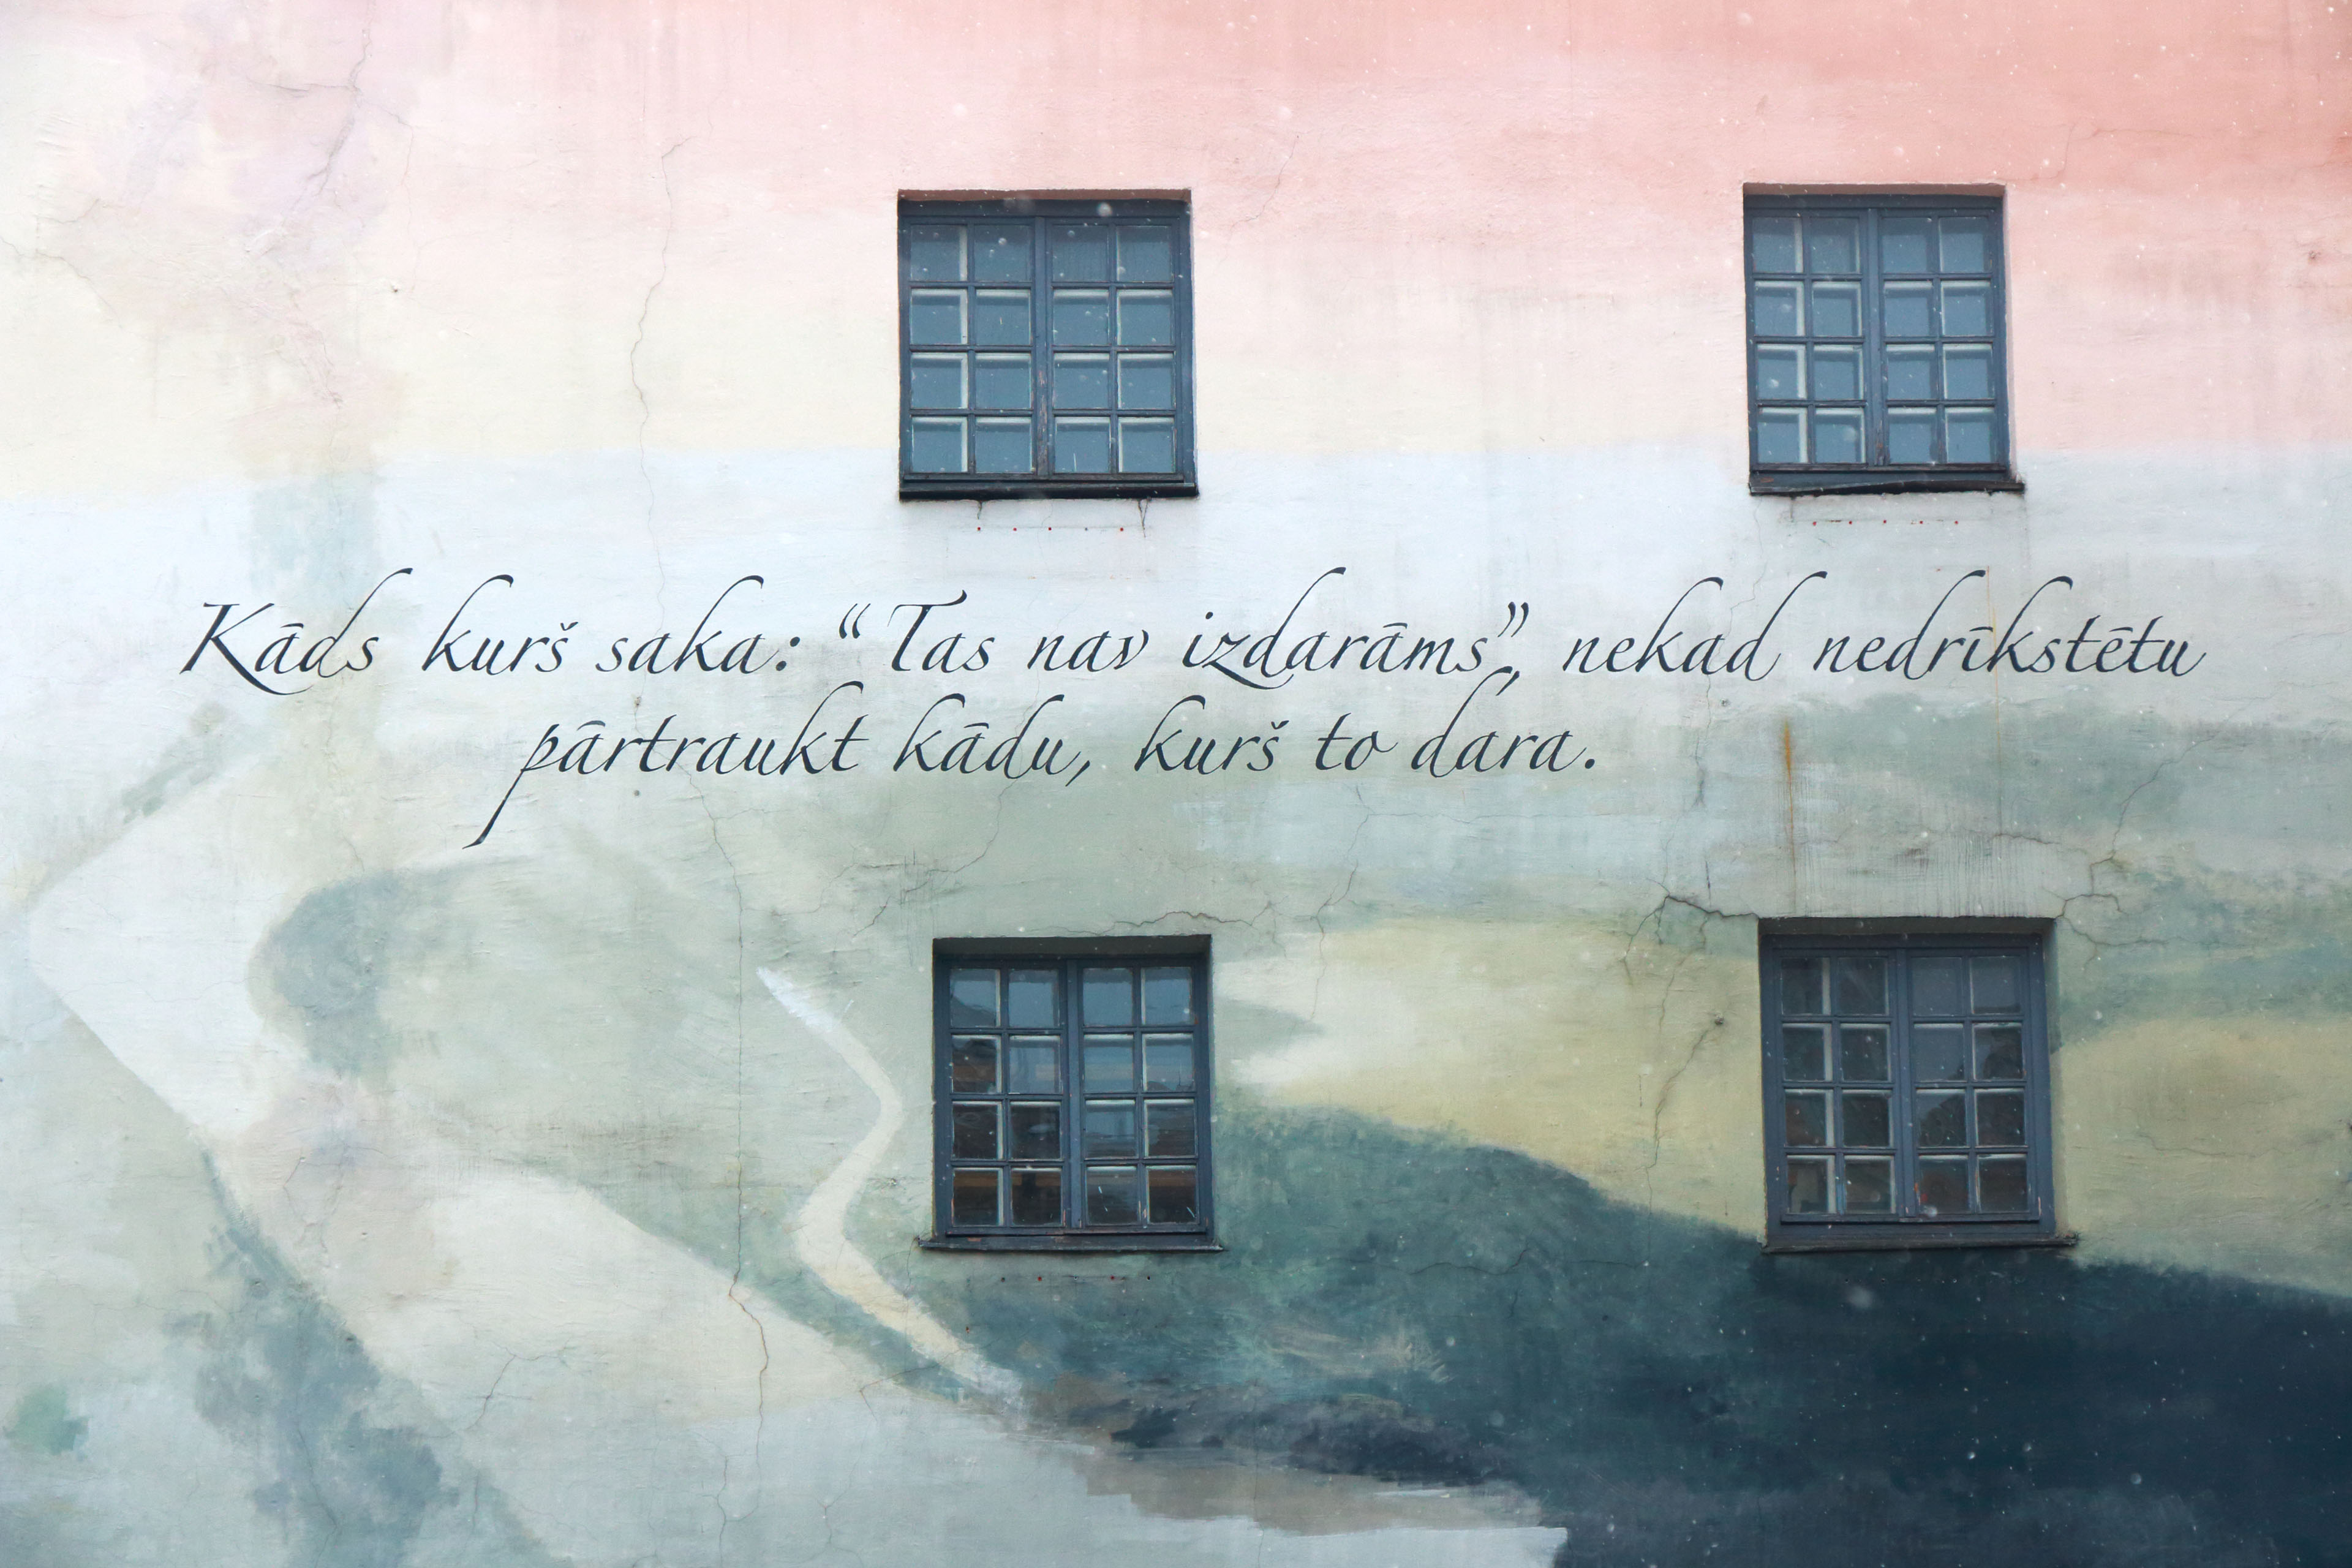 Kāds kurš saka: “Tas nav izdarāms”, nekad nedrīkstētu
pārtraukt kādu, kurš to dara.